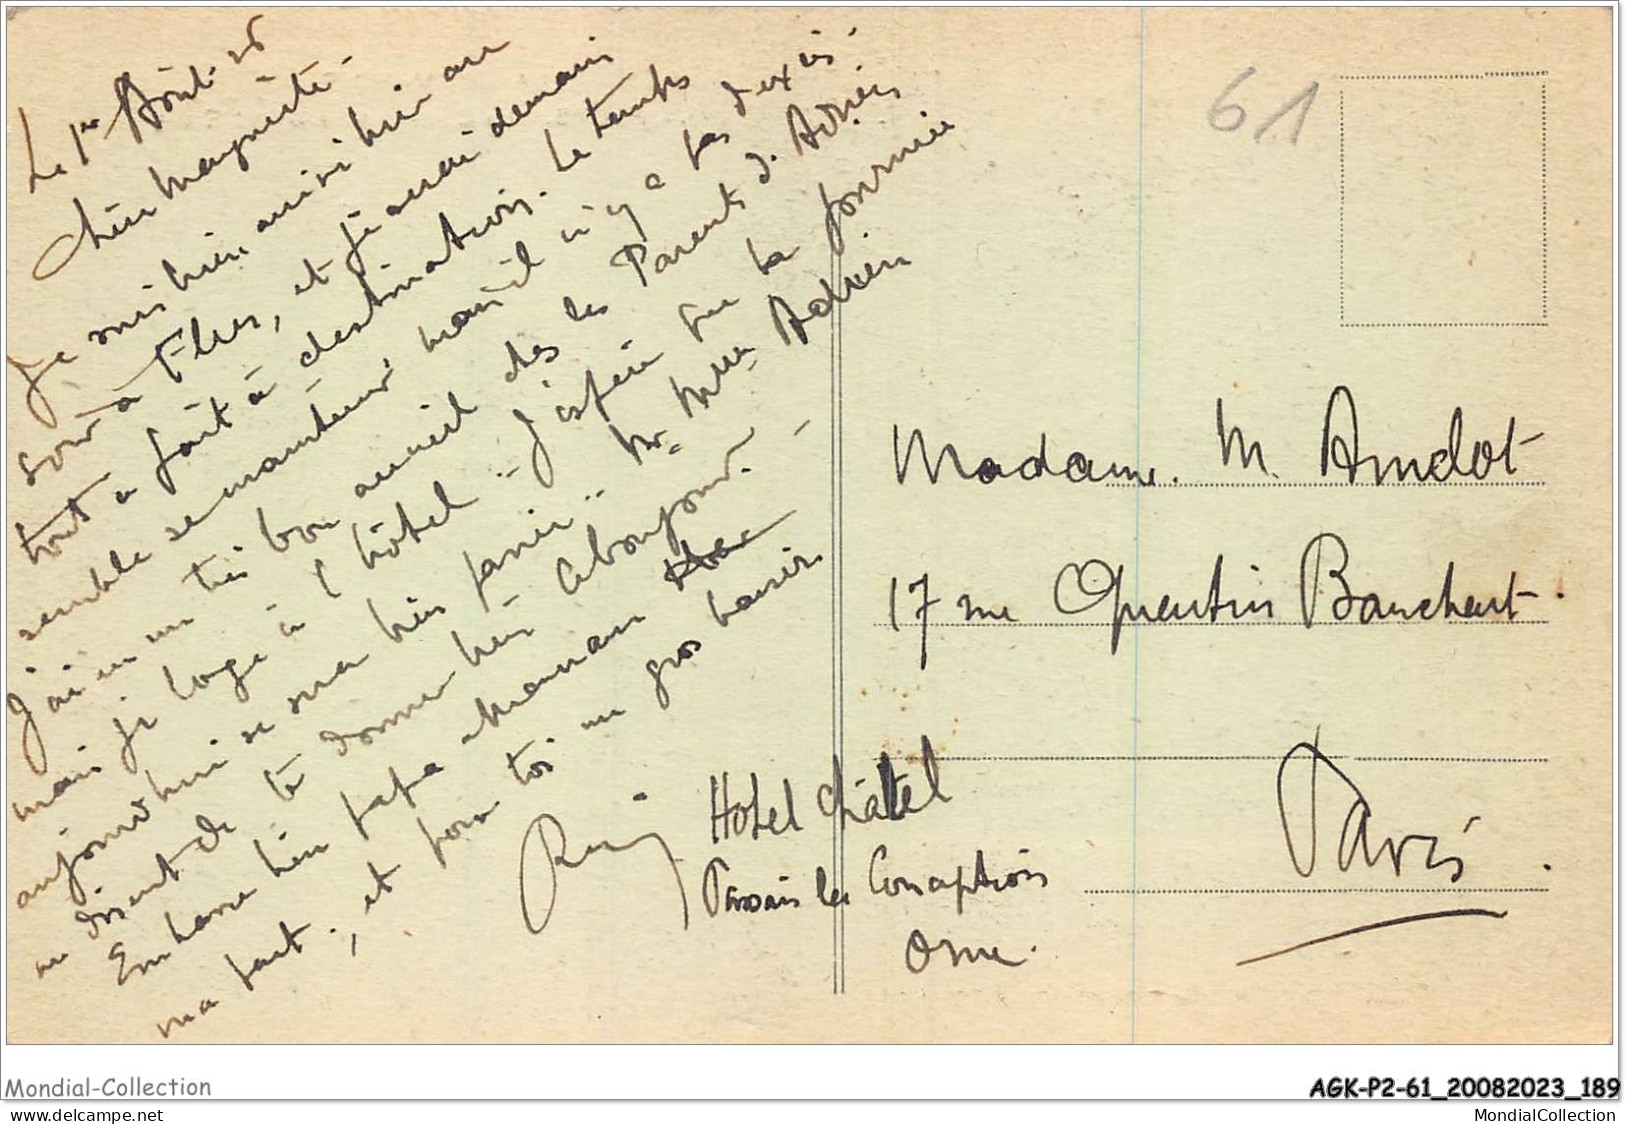 Le 1er Août 26
Chère Marguerite.
Je suis bien arrivé hier au
soir à Flers, et je serai demain
tout à fait à destination. Le temps
semble se maintenir, mais il n'y a pas d'excès.
J'ai eu un très bon accueil chez les Parents d'Adrien
mais je loge à l'hôtel. J'espère que la journée
aujourd'hui se sera bien passée. Mr Mme Adrien
me disent de te donner bien le bonjour.
Embrasse bien papa et maman
ma part, et pour toi un gros baiser.
61
Madame. M. Amelot
17 rue Quentin Bauchart.
Paris.
Hotel Châtel
Passais la Conception
Orne.
Mondial-Collection
www.delcampe.net
AGK-P2-61_20082023_189
MondialCollection